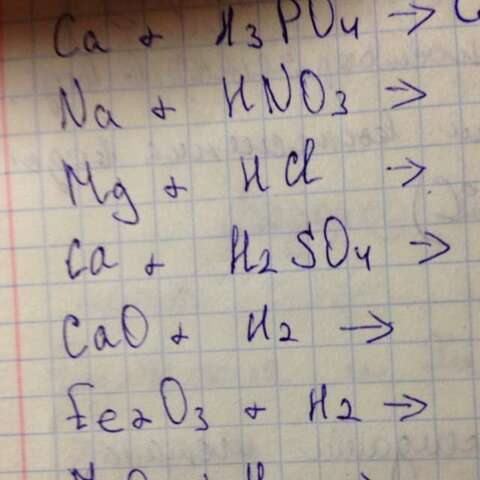 Ca + H₃PO₄ →
Na + HNO₃ →
Mg + HCl →
Ca + H₂SO₄ →
CaO + H₂ →
Fe₂O₃ + H₂ →